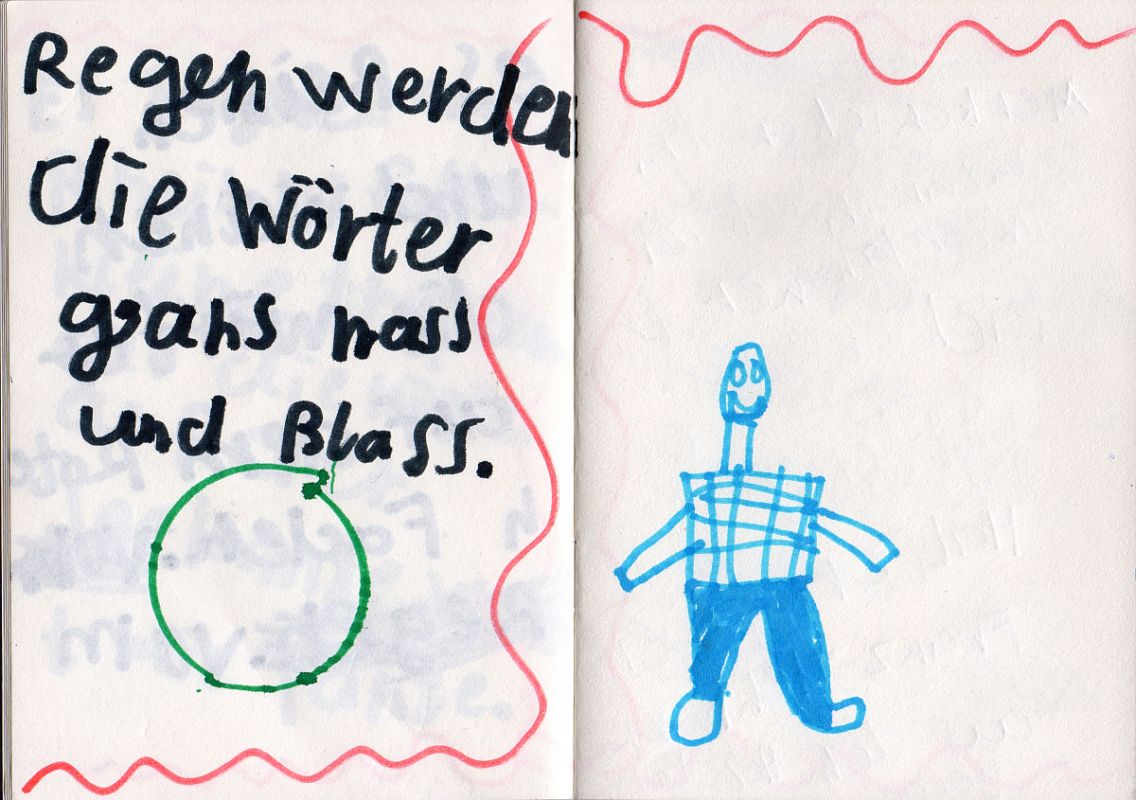 Regen werden
die Wörter
gans nass
und Blass.